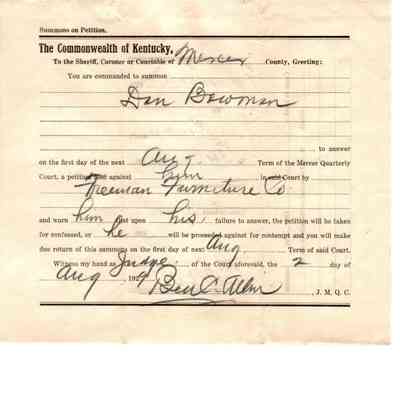 Summons on Petition.
The Commonwealth of Kentucky,
To the Sheriff, Coroner or Constable of Mercer County, Greeting:
You are commanded to summon
Dan Bowman
to answer
on the first day of the next Aug Term of the Mercer Quarterly
Court, a petition filed against him in said Court by
Freeman Furniture Co
and warn him that upon his failure to answer, the petition will be taken
for confessed, or he will be proceeded against for contempt and you will make
due return of this summons on the first day of next Aug Term of said Court.
Witness my hand as Judge of the Court aforesaid, the 2 day of
Aug 1929 Ben C. Allin, J. M. Q. C.